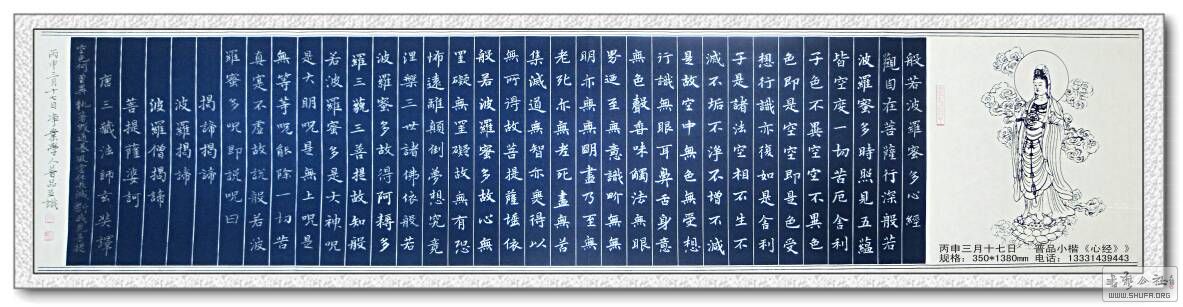 般若波羅蜜多心經
觀自在菩薩行深般若
波羅蜜多時照見五蘊
皆空度一切苦厄舍利
子色不異空空不異色
色即是空空即是色受
想行識亦復如是舍利
子是諸法空相不生不
滅不垢不淨不增不減
是故空中無色無受想
行識無眼耳鼻舌身意
無色聲香味觸法無眼
界迺至無意識界無無
明亦無無明盡乃至無
老死亦無老死盡無苦
集滅道無智亦無得以
無所得故菩提薩埵依
般若波羅蜜多故心無
罣礙無罣礙故無有恐
怖遠離顛倒夢想究竟
涅槃三世諸佛依般若
波羅蜜多故得阿耨多
羅三藐三菩提故知般
若波羅蜜多是大神呪
是大明呪是無上呪是
無等等呪能除一切苦
真實不虛故說般若波
羅蜜多呪即說呪曰
揭諦揭諦
波羅揭諦
波羅僧揭諦
菩提薩婆訶
唐三藏法師玄奘譯
丙申三月十七日淨業學人晉品並識
丙申三月十七日 晋品小楷《心经》》
规格：350*1380mm 电话：13331439443
WWW.SHUFA.ORG